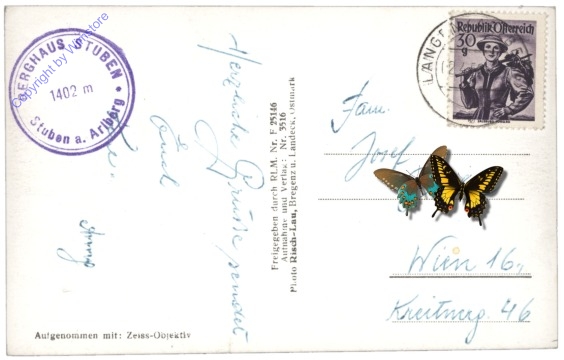 BERGHAUS STUBEN
1402 m
Stuben a. Arlberg
Copyright by Wörlstore
Herzliche Grüße sendet
Euch
Freigegeben durch RLM. Nr. F 25146
Aufnahme und Verlag: Nr. 3516
Photo Risch-Lau, Bregenz u. Landeck, Ostmark
Aufgenommen mit: Zeiss-Objektiv
LANGEN
Republik Österreich
30
g
Fam.
Josef
Wien 16.,
46